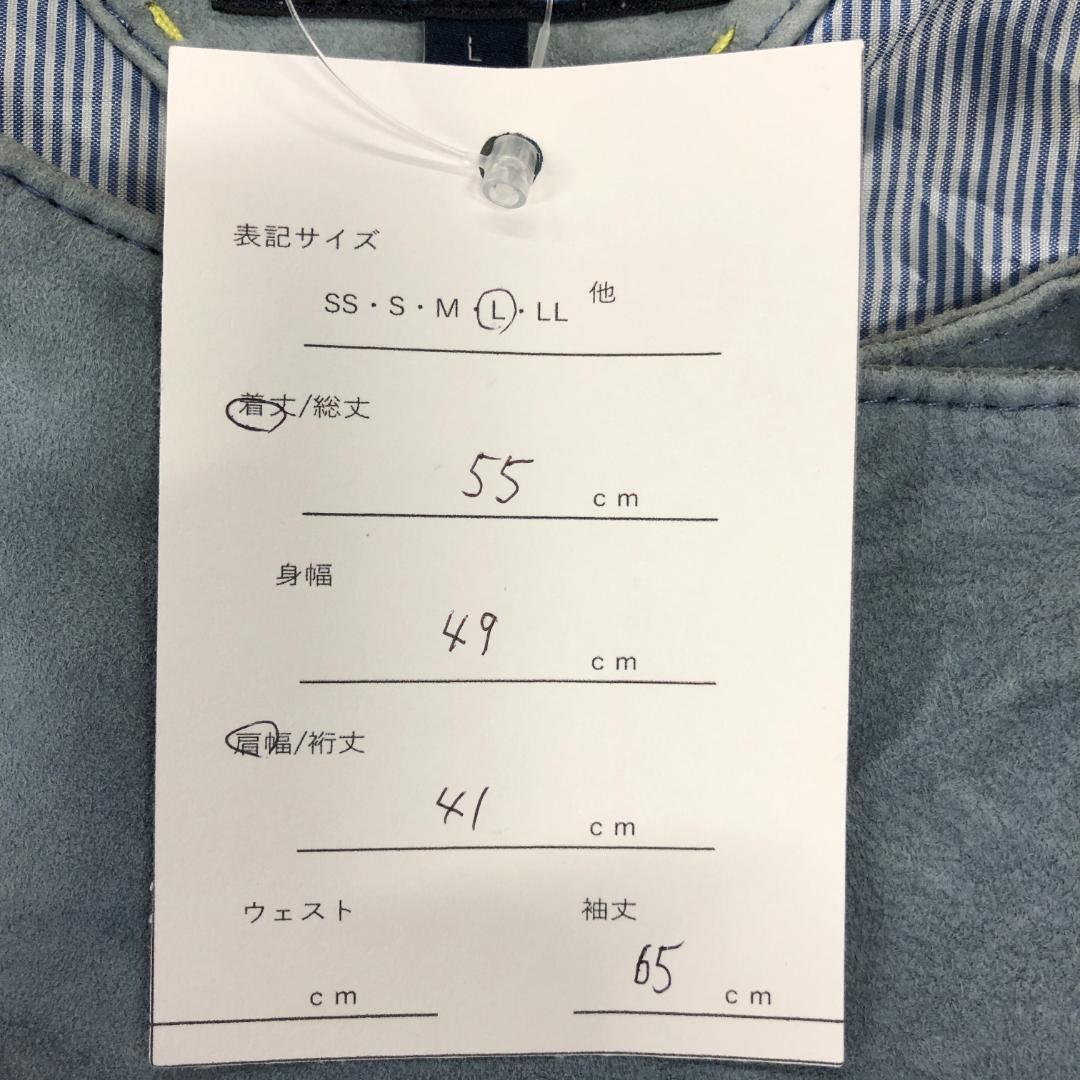 L
表記サイズ
SS・S・M・L・LL 他
着丈/総丈
55 cm
身幅
49 cm
肩幅/裄丈
41 cm
ウェスト 袖丈
cm 65 cm